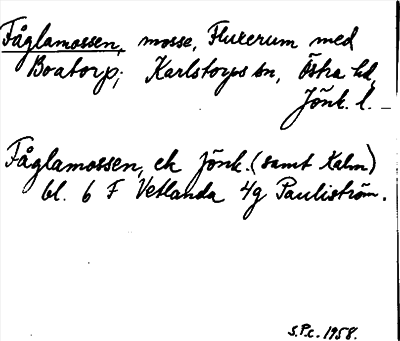 Fåglamossen, mosse, Fluxerum med
Boatorp; Karlstorps sn, Östra hd,
Jönk. l.
Fåglamossen, ek Jönk. (samt Kalm)
bl. 6 F Vetlanda 4g Pauliström.
S.P.c. 1958.